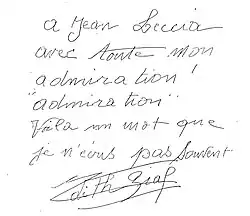 a Jean Leccia
avec toute mon
"admiration!
"admiration"
Voila un mot que
je n'écris pas souvent
Edith Piaf